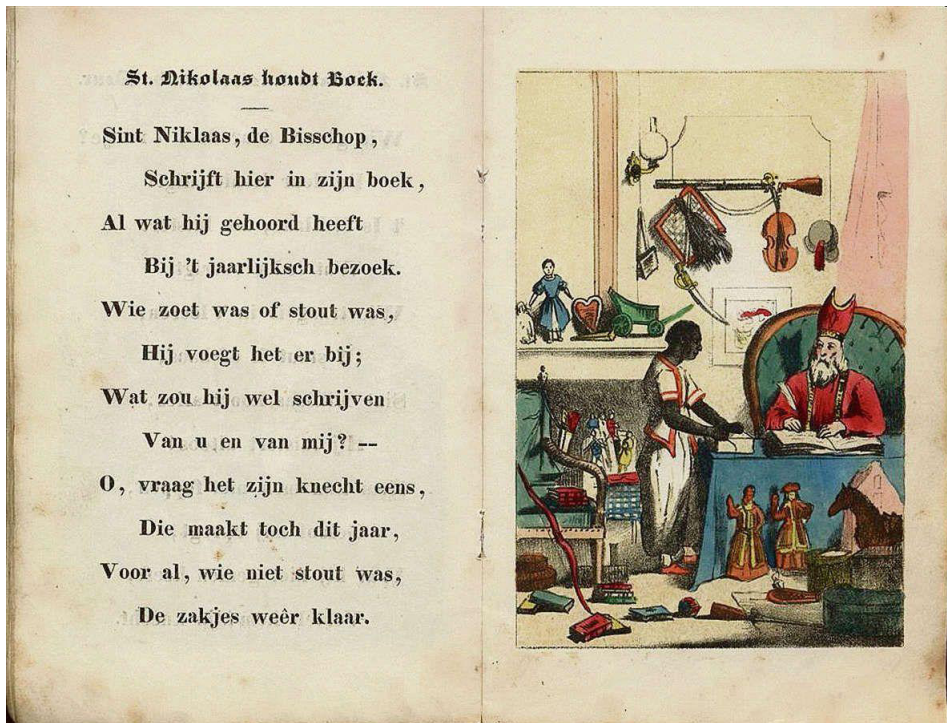 St. Nikolaas houdt Boek.
Sint Niklaas, de Bisschop,
Schrijft hier in zijn boek,
Al wat hij gehoord heeft
Bij 't jaarlijksch bezoek.
Wie zoet was of stout was,
Hij voegt het er bij;
Wat zou hij wel schrijven
Van u en van mij? --
O, vraag het zijn knecht eens,
Die maakt toch dit jaar,
Voor al, wie niet stout was,
De zakjes weêr klaar.